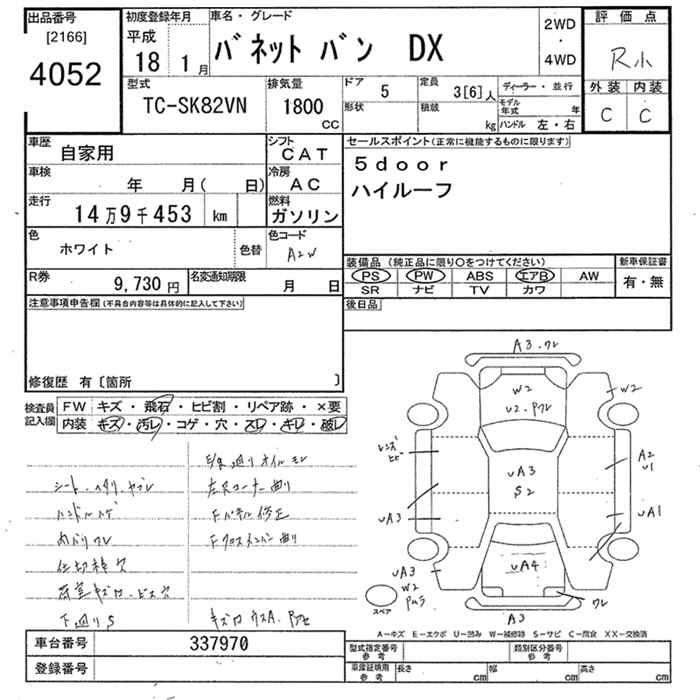 出品番号
[2166]
4052
初度登録年月
平成
18 1月
車名・グレード
バネット バン DX
2WD
・
4WD
評価点
R小
外装 内装
C C
型式
TC-SK82VN
排気量
1800
CC
ドア
5
形状
定員
3[6]人
積載
kg
ディーラー・並行
モデル年式 年
ハンドル 左・右
車歴
自家用
車検
年 月( 日)
走行
14万9千453 km
シフト
CAT
冷房
AC
燃料
ガソリン
色
ホワイト
色替
色コード
A2W
R券
9,730円
名変通知期限
月 日
セールスポイント(正常に機能するものに限ります)
5door
ハイルーフ
装備品(純正品に限り○をつけてください)
PS PW ABS エアB AW
SR ナビ TV カワ
新車保証書
有・無
後日品
注意事項申告欄(不具合内容等は具体的に記入して下さい)
修復歴 有〔箇所 〕
検査員
記入欄
FW キズ・飛石・ヒビ割・リペア跡・×要
内装 キズ・汚レ・コゲ・穴・スレ・キレ・破レ
シート・ヘタリ・ヤブレ
ハンドルスレ
内バリワレ
仕切棒欠
荷室キズ・ビス穴
下廻りS
左Rコーナー曲り
Fパネル修正
Fクロスメンバー曲り
A3・ワレ
W2
U2.
W2
レンズ
ヒビ
UA3
S2
A2
U1
UA3
UA1
UA3
W2
UA4
ワレ
A3
スペア
A-キズ E-エクボ U-凹み W-補修跡 S-サビ C-腐食 XX-交換済
車台番号 337970
登録番号
型式指定番号
参考
類別区分番号
参考
車庫証明用
参考
長さ cm 幅 cm 高さ cm